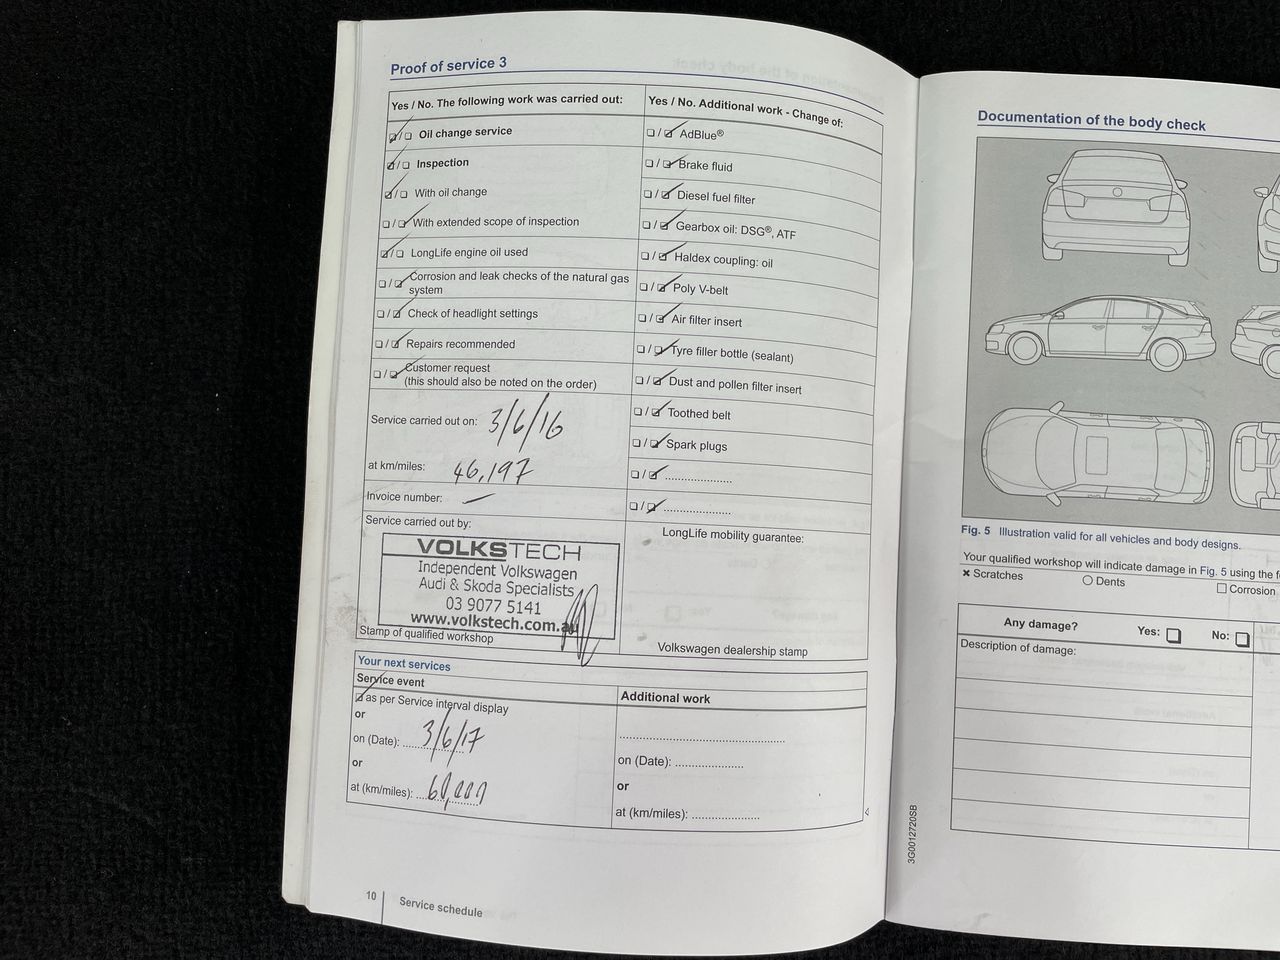 Proof of service 3
Yes / No. The following work was carried out:
☑/☐ Oil change service
☑/☐ Inspection
☑/☐ With oil change
☐/☑ With extended scope of inspection
☑/☐ LongLife engine oil used
☐/☑ Corrosion and leak checks of the natural gas
system
☐/☑ Check of headlight settings
☐/☑ Repairs recommended
☐/☑ Customer request
(this should also be noted on the order)
Service carried out on: 3/6/16
at km/miles: 46,197
Invoice number: —
Service carried out by:
VOLKSTECH
Independent Volkswagen
Audi & Skoda Specialists
03 9077 5141
www.volkstech.com.au
Stamp of qualified workshop
Yes / No. Additional work - Change of:
☐/☑ AdBlue®
☐/☑ Brake fluid
☐/☑ Diesel fuel filter
☐/☑ Gearbox oil: DSG®, ATF
☐/☑ Haldex coupling: oil
☐/☑ Poly V-belt
☐/☑ Air filter insert
☐/☑ Tyre filler bottle (sealant)
☐/☑ Dust and pollen filter insert
☐/☑ Toothed belt
☐/☑ Spark plugs
☐/☑ ......................
☐/☑ ......................
LongLife mobility guarantee:
Volkswagen dealership stamp
Your next services
Service event
☑ as per Service interval display
or
on (Date): 3/6/17
or
at (km/miles):
Additional work
......................................................
on (Date): ......................
or
at (km/miles): ......................
10
Service schedule
Documentation of the body check
Fig. 5 Illustration valid for all vehicles and body designs.
Your qualified workshop will indicate damage in Fig. 5 using the
× Scratches
○ Dents
☐ Corrosion
Any damage? Yes: ☐ No: ☐
Description of damage:
3G0012720SB